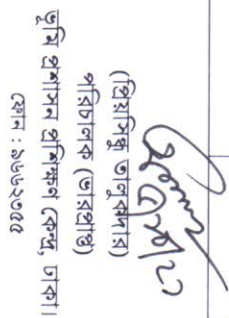 (প্রিয়সিন্ধু তালুকদার)
পরিচালক (ভারপ্রাপ্ত)
ভূমি প্রশাসন প্রশিক্ষণ কেন্দ্র, ঢাকা।
ফোন :